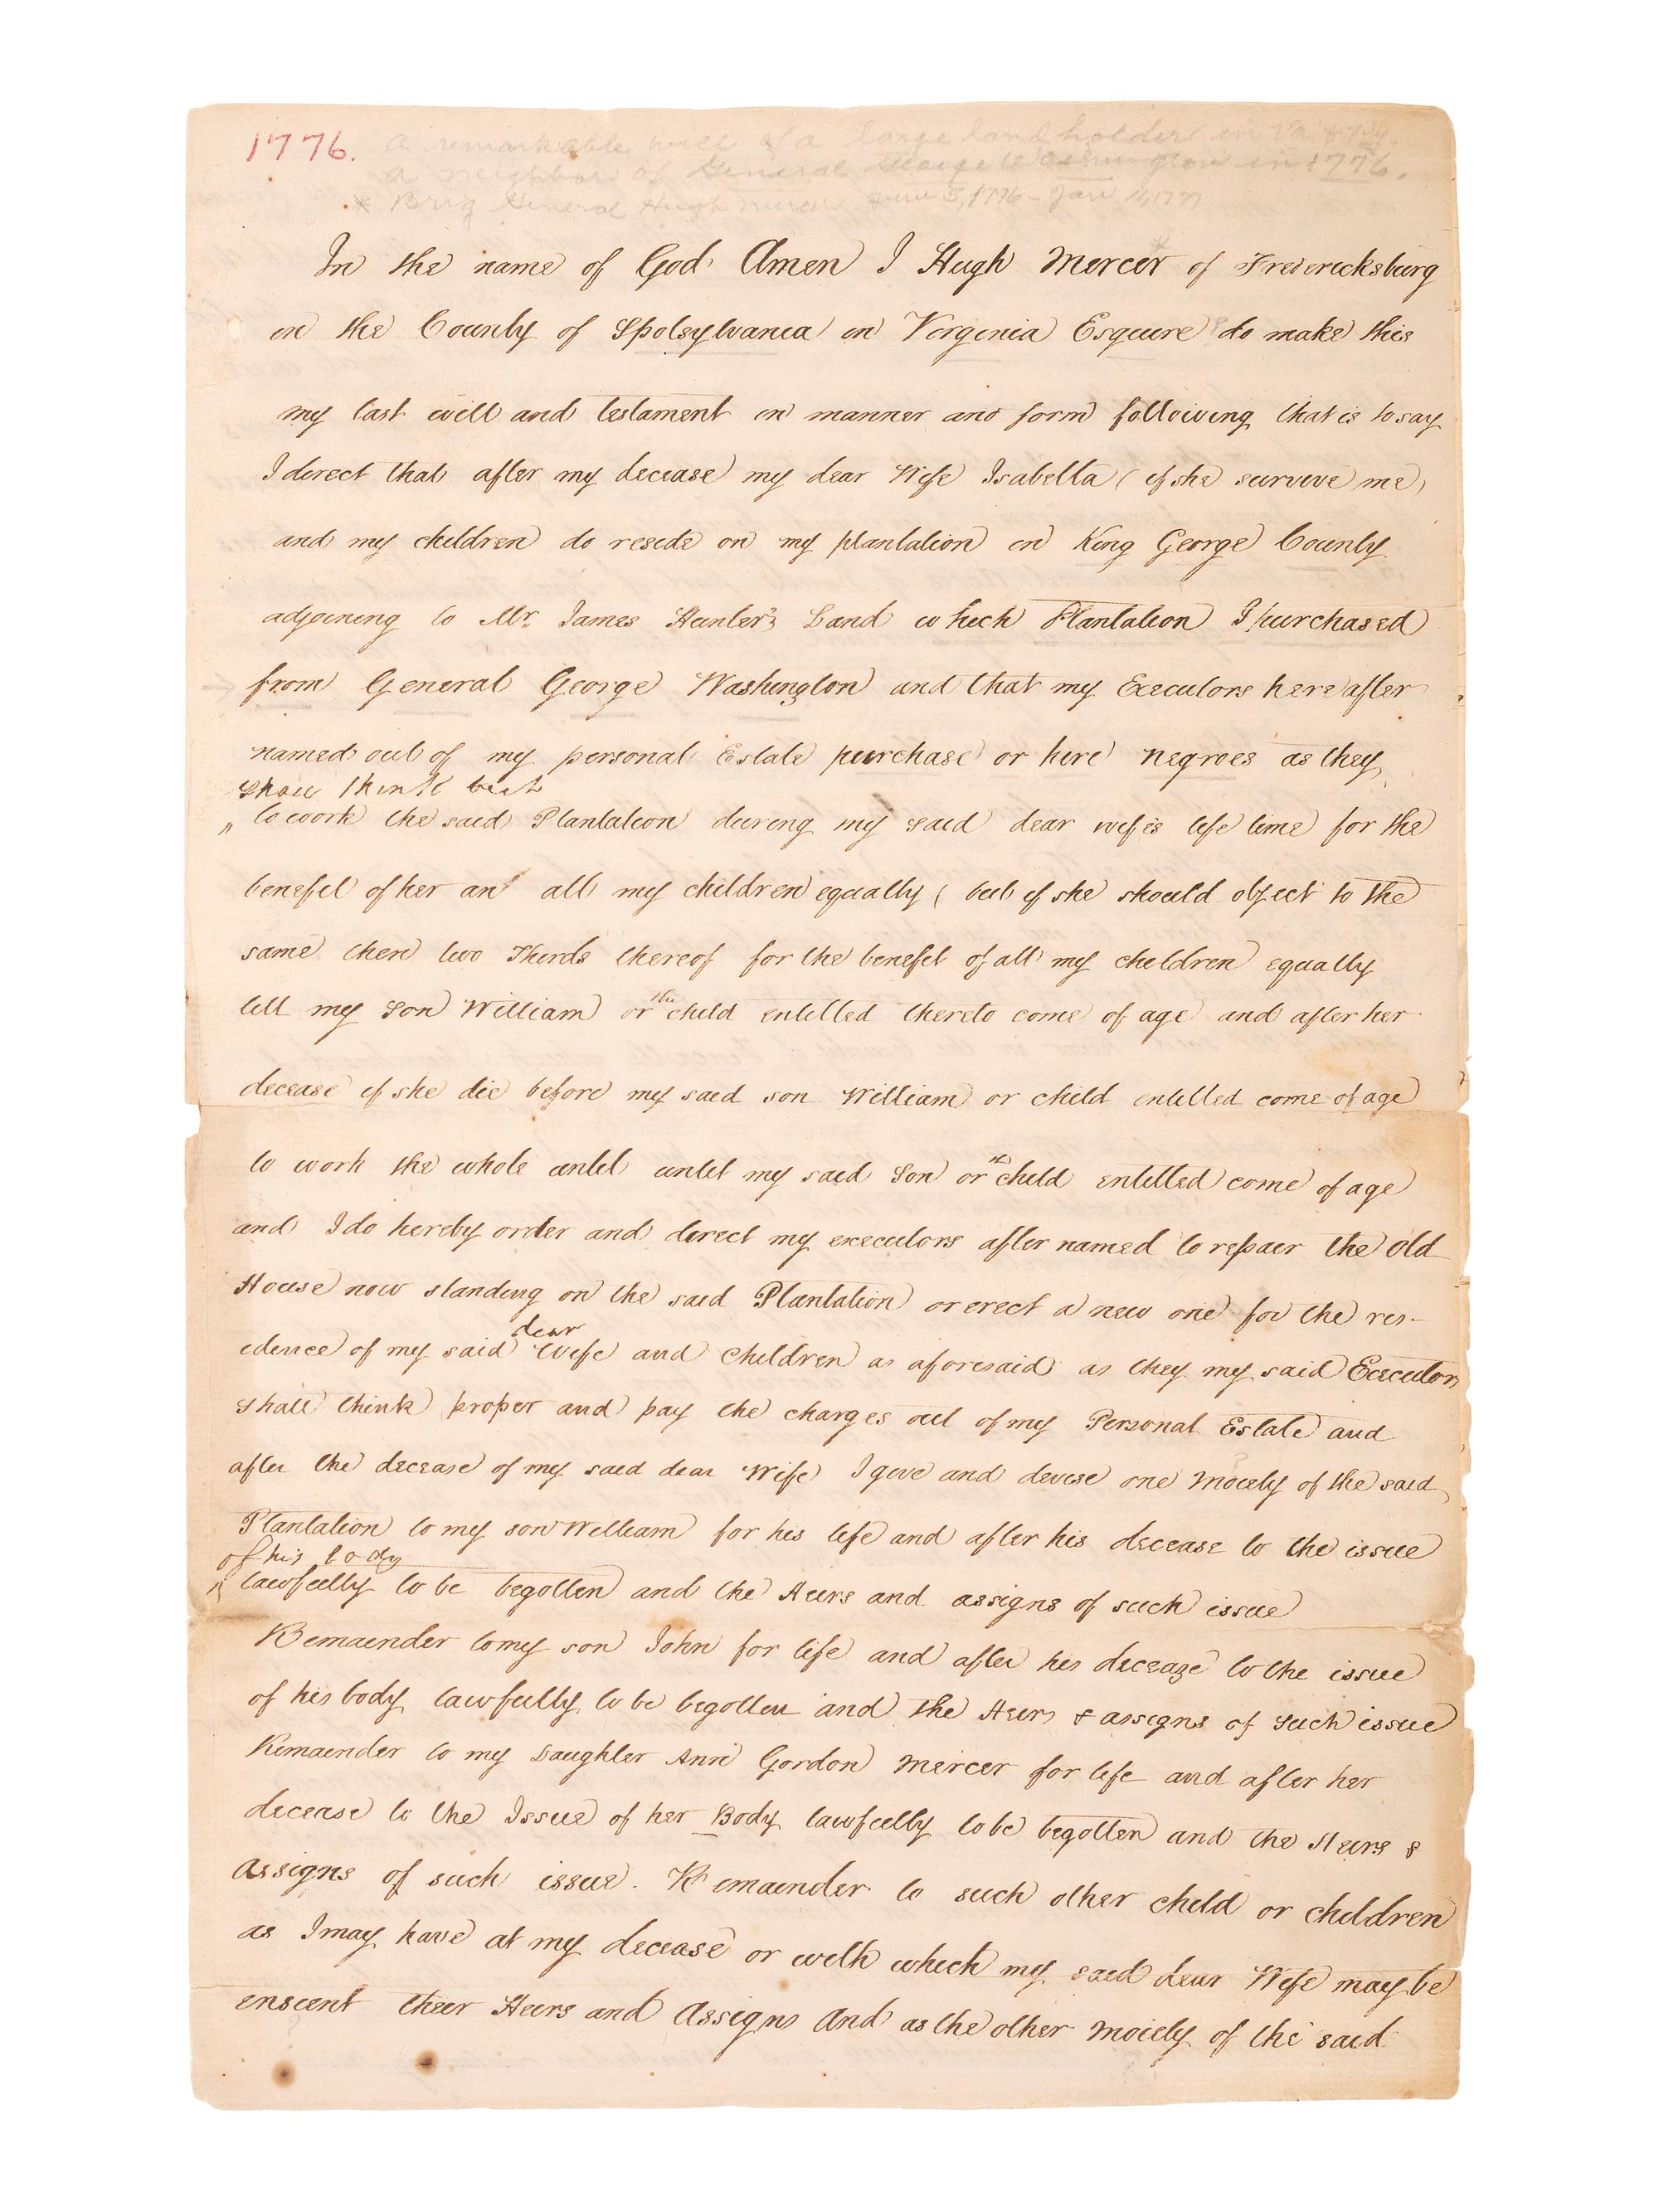 1776. a remarkable will of a large landholder in Va
a neighbor of General George Washington in 1776.
* Brig General Hugh Mercer June 5, 1776 - Jan
In the name of God Amen I Hugh Mercer * of Fredericksburg
in the County of Spotsylvania in Virginia Esquire do make this
my last will and testament in manner and form following that is to say
I direct that after my decease my dear Wife Isabella (if she survive me)
and my children do reside on my plantation in King George County
adjoining to Mr. James Hunter's Land which Plantation I purchased
from General George Washington and that my Executors hereafter
named out of my personal Estate purchase or hire negroes as they
shall think best
to work the said Plantation during my said dear wifes life time for the
benefit of her an all my children equally ( but if she should object to the
same then two Thirds thereof for the benefit of all my children equally
till my Son William or the child entitled thereto come of age and after her
decease if she die before my said son William or child entitled come of age
to work the whole until until my said Son or the child entitled come of age
and I do hereby order and direct my executors after named to repair the old
House now standing on the said Plantation or erect a new one for the res-
idence of my said dear Wife and Children as aforesaid as they my said Executors
shall think proper and pay the charges out of my Personal Estate and
after the decease of my said dear Wife I give and devise one moiety of the said
Plantation to my son William for his life and after his decease to the issue
of his body
lawfully to be begotten and the Heirs and assigns of such issue
Remainder to my son John for life and after his decease to the issue
of his body lawfully to be begotten and the Heirs & assigns of such issue
Remainder to my Daughter Ann Gordon Mercer for life and after her
decease to the Issue of her Body lawfully to be begotten and the Heirs &
assigns of such issue. Remainder to such other child or children
as I may have at my decease or with which my said dear Wife may be
enscent their Heirs and Assigns And as the other moiety of the said